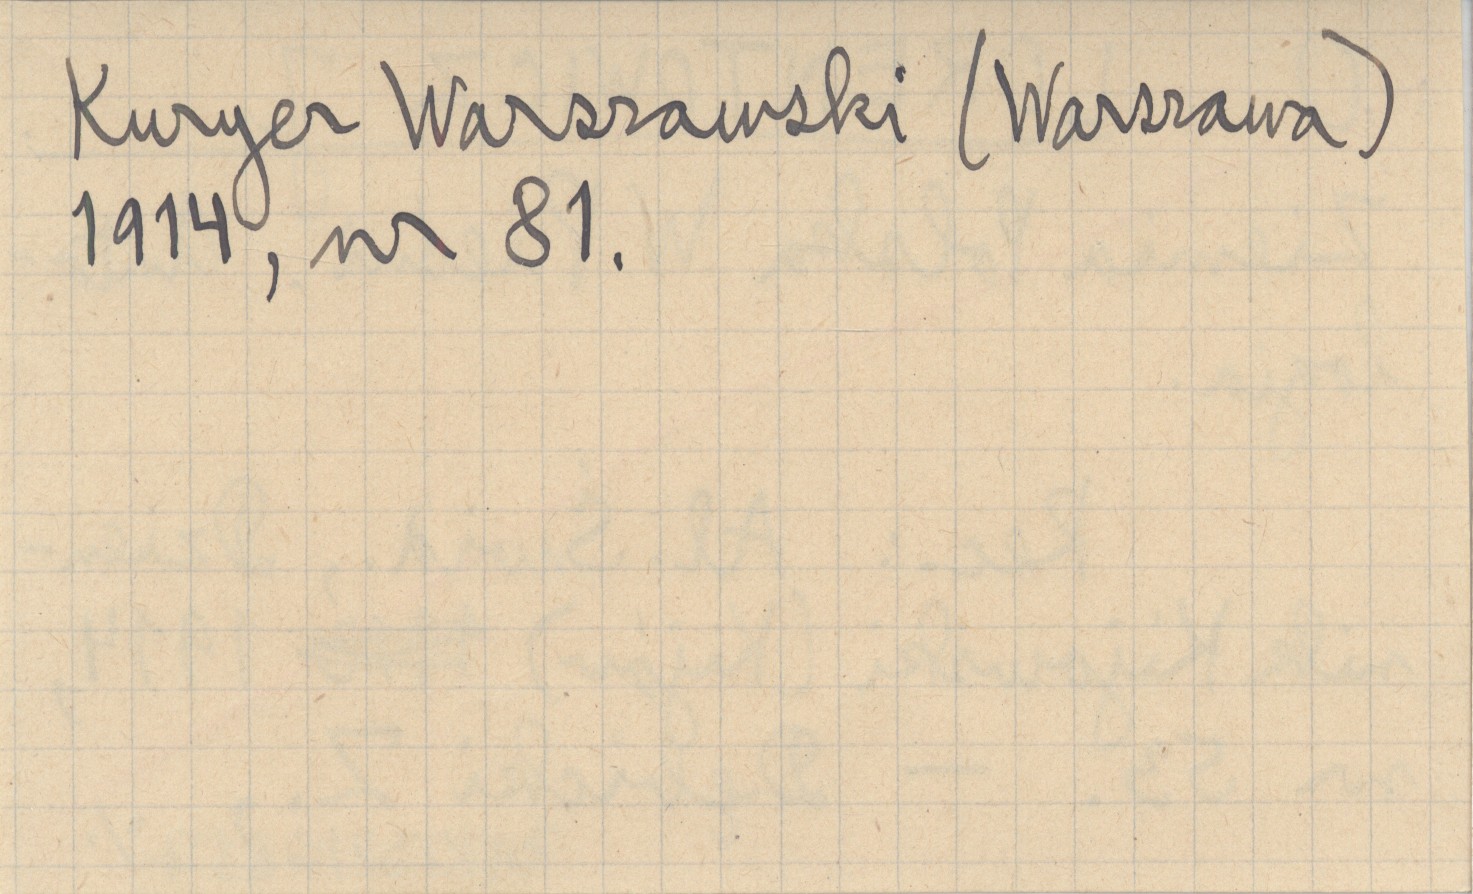 Kuryer Warszawski (Warszawa)
1914, nr 81.